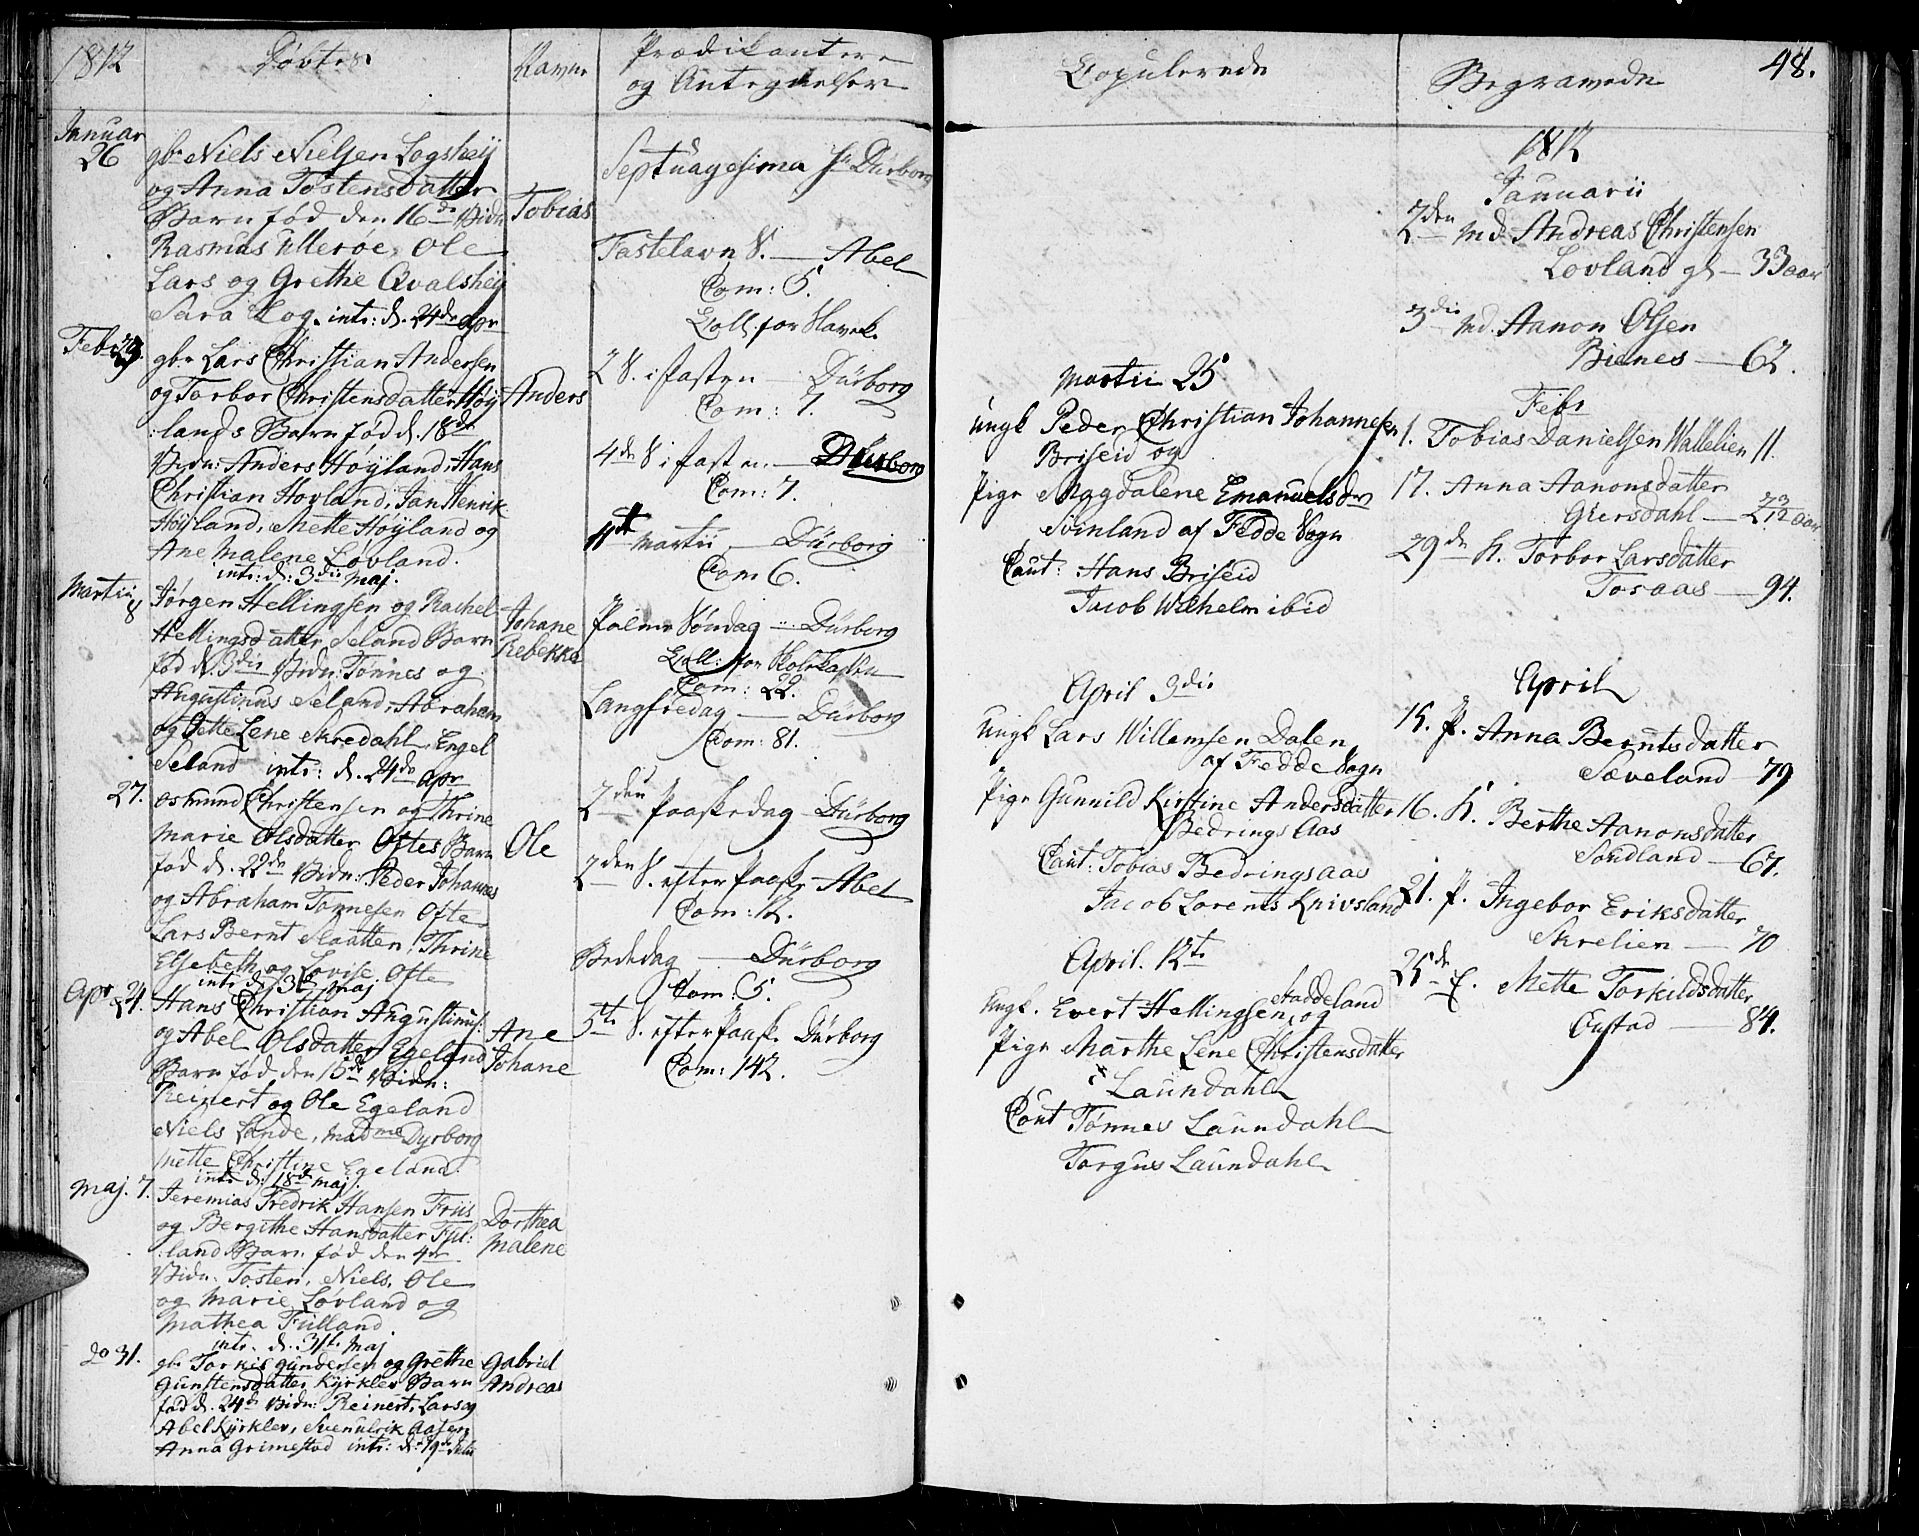 1812
Døbte
Navne
Prædikanter
og Antegnelser
Januar
26
gb. Niels Nielsen Logshej
og Anna Tostensdatter
Barn fød den 16de Vidn
Rasmus Ullerøe, Ole
Lars og Grethe Qvalshej
Sara Log. intr: d. 24de Apr
Tobias
Febr 29.
gbr. Lars Christian Andersen
og Torbor Christensdatter Høy
:lands Barn fød d. 18de
Vidn: Anders Høyland, Hans
Christian Hovland, Jan Henrik
Høyland, Mette Høyland og
Ane Malene Lovland.
intr: d: 3die Maj.
Anders
Martii
8
Jørgen Hellingsen og Rachel
Hellingsdatter Seland Barn
fød d. 3die Vidn: Tønnes og
Augustinus Seland, Abraham
og Jette Lene Skredahl, Engel
Seland intr: d. 24de Apr
Johane
Rebekka
27.
Osmund Christensen og Thrine
Marie Olsdatter Oftes Barn
fød d. 22de Vidn: Peder Johannes
og Abraham Tønnesen Ofte
Lars Bernt Slaatten, Thrine
Elsebeth og Lovise Ofte
intr d: 3die Maj
Ole
Apr 24.
Hans Christian Augustinus:
og Abel Olsdatter Egeland
Barn fød den 15de Vidn:
Reinert og Ole Egeland
Niels Lande, Madme Dyrborg
Mette Christine Egeland.
intr d: 18de Maj.
Ane
Johane
Maj. 7.
Jeremias Fredrik Hansen Friis
og Bergithe Hansdatter Fül:
:land Barn fød den 4de
Vidn. Tosten, Niels, Ole
og Marie Løvland og
Mathea Fülland.
intr. d. 31te Maj
Dorthea
Malene
do 31.
gb. Torkis Gundersen og Grethe
Gunstensdatter Kyrklev Barn
fød d. 24de Vidn: Reinert, Lars og
Abel Kyrklev, Svenulrik Aasen
Anna Grimestad intr: d: 19de
Gabriel
Andreas
Septuagesima Hr Dürborg
Fastelavn S. — Abel
Com: 5.
Coll: for
2 S. i Fasten — Dürborg
Com: 7.
4de S i Fasten. — Dürborg
Com: 7.
Martii — Dürborg
Com 6.
Palme Søndag — Dürborg
Coll: for Skolekassen
Com: 22.
Langfredag — Dürborg
Com: 81.
2den Paaskedag — Dürborg
2den S. efter Paaske — Abel
Com: 12.
Bededag — Dürborg
Com: 5.
5te S. efter Paaske Dürborg
Com: 142.
Copulerede
Martii 25
Ungk Peder Christian Johannesen
Briseid og
Pige Magdalene Emanuelsdr
Svinland af Fedde Sogn
Caut: Hans Briseid
Jacob Wilhelm ibid
April 3die
Ungk Lars Willemsen Dalen
af Fedde Sogn
Pige Gunnild Kirstine Andersdatter
Bedrings Aas
Caut: Tobias Bedringsaas
Jacob Lorents Knivsland
April. 12te
Ungk. Evert Hellingsen Staddeland
og
Pige Marthe Lene Christensdatter
Laundahl
Caut Tønnes Laundahl
Torgus Laundahl
Begravede
48.
1812
Januarii
2den Md. Andreas Christensen
Lovland gl — 33 aar
3die Md. Aanon Olsen
Bienes — 62.
Febr
1. Tobias Danielsen Wallelien 11.
17. Anna Aanonsdatter
Giersdahl — 2 3/12 aar
29de K. Torbor Larsdatter
Tosaas — 94.
April
15. P. Anna Berntsdatter
Sæveland — 79
16. K. Berthe Aanonsdatter
Sondland — 67.
21. P. Ingebor Eriksdatter
Skrelien — 70
25de E. Mette Torkildsdatter
Øystad — 84.